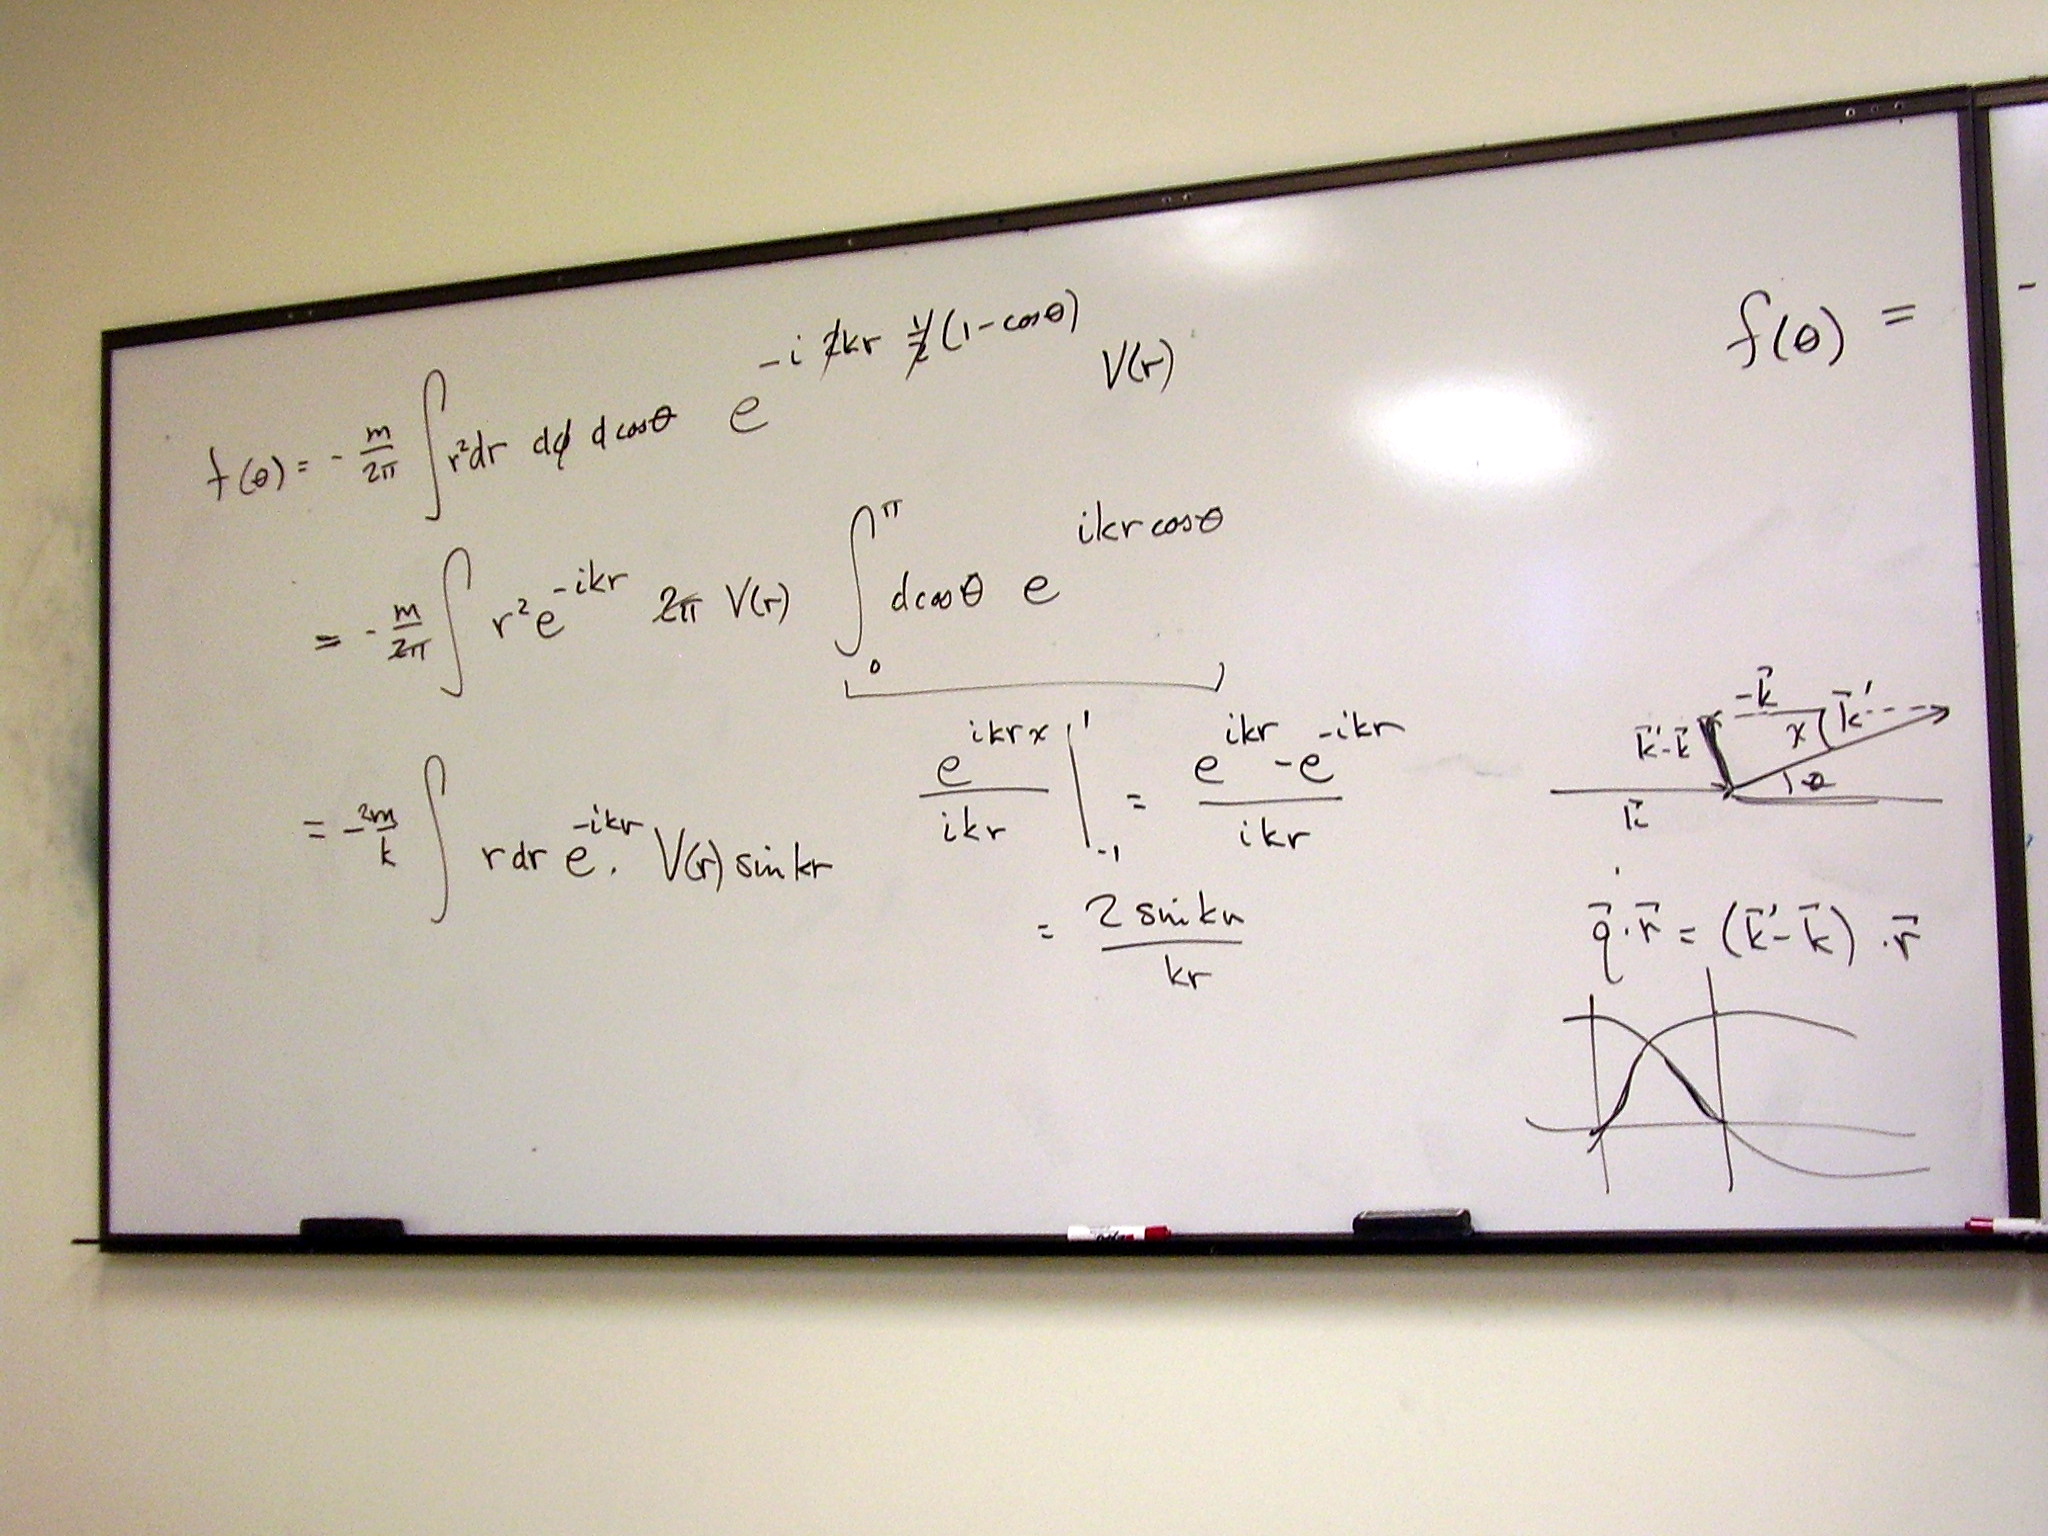 f(θ) = - m/2π ∫ r²dr dφ dcosθ e^{-i 2kr 1/2 (1-cosθ)} V(r)
= - m/2π ∫ r² e^{-ikr} 2π V(r) ∫_0^π dcosθ e^{ikr cosθ}
e^{ikrx}/ikr |_{-1}^{1} = (e^{ikr} - e^{-ikr})/ikr
= - 2m/k ∫ r dr e^{-ikr}. V(r) sin kr
= 2 sin kr / kr
f(θ) = -
-k⃗
k⃗'
k⃗'-k⃗
x
θ
k⃗
q⃗·r⃗ = (k⃗'-k⃗)·r⃗